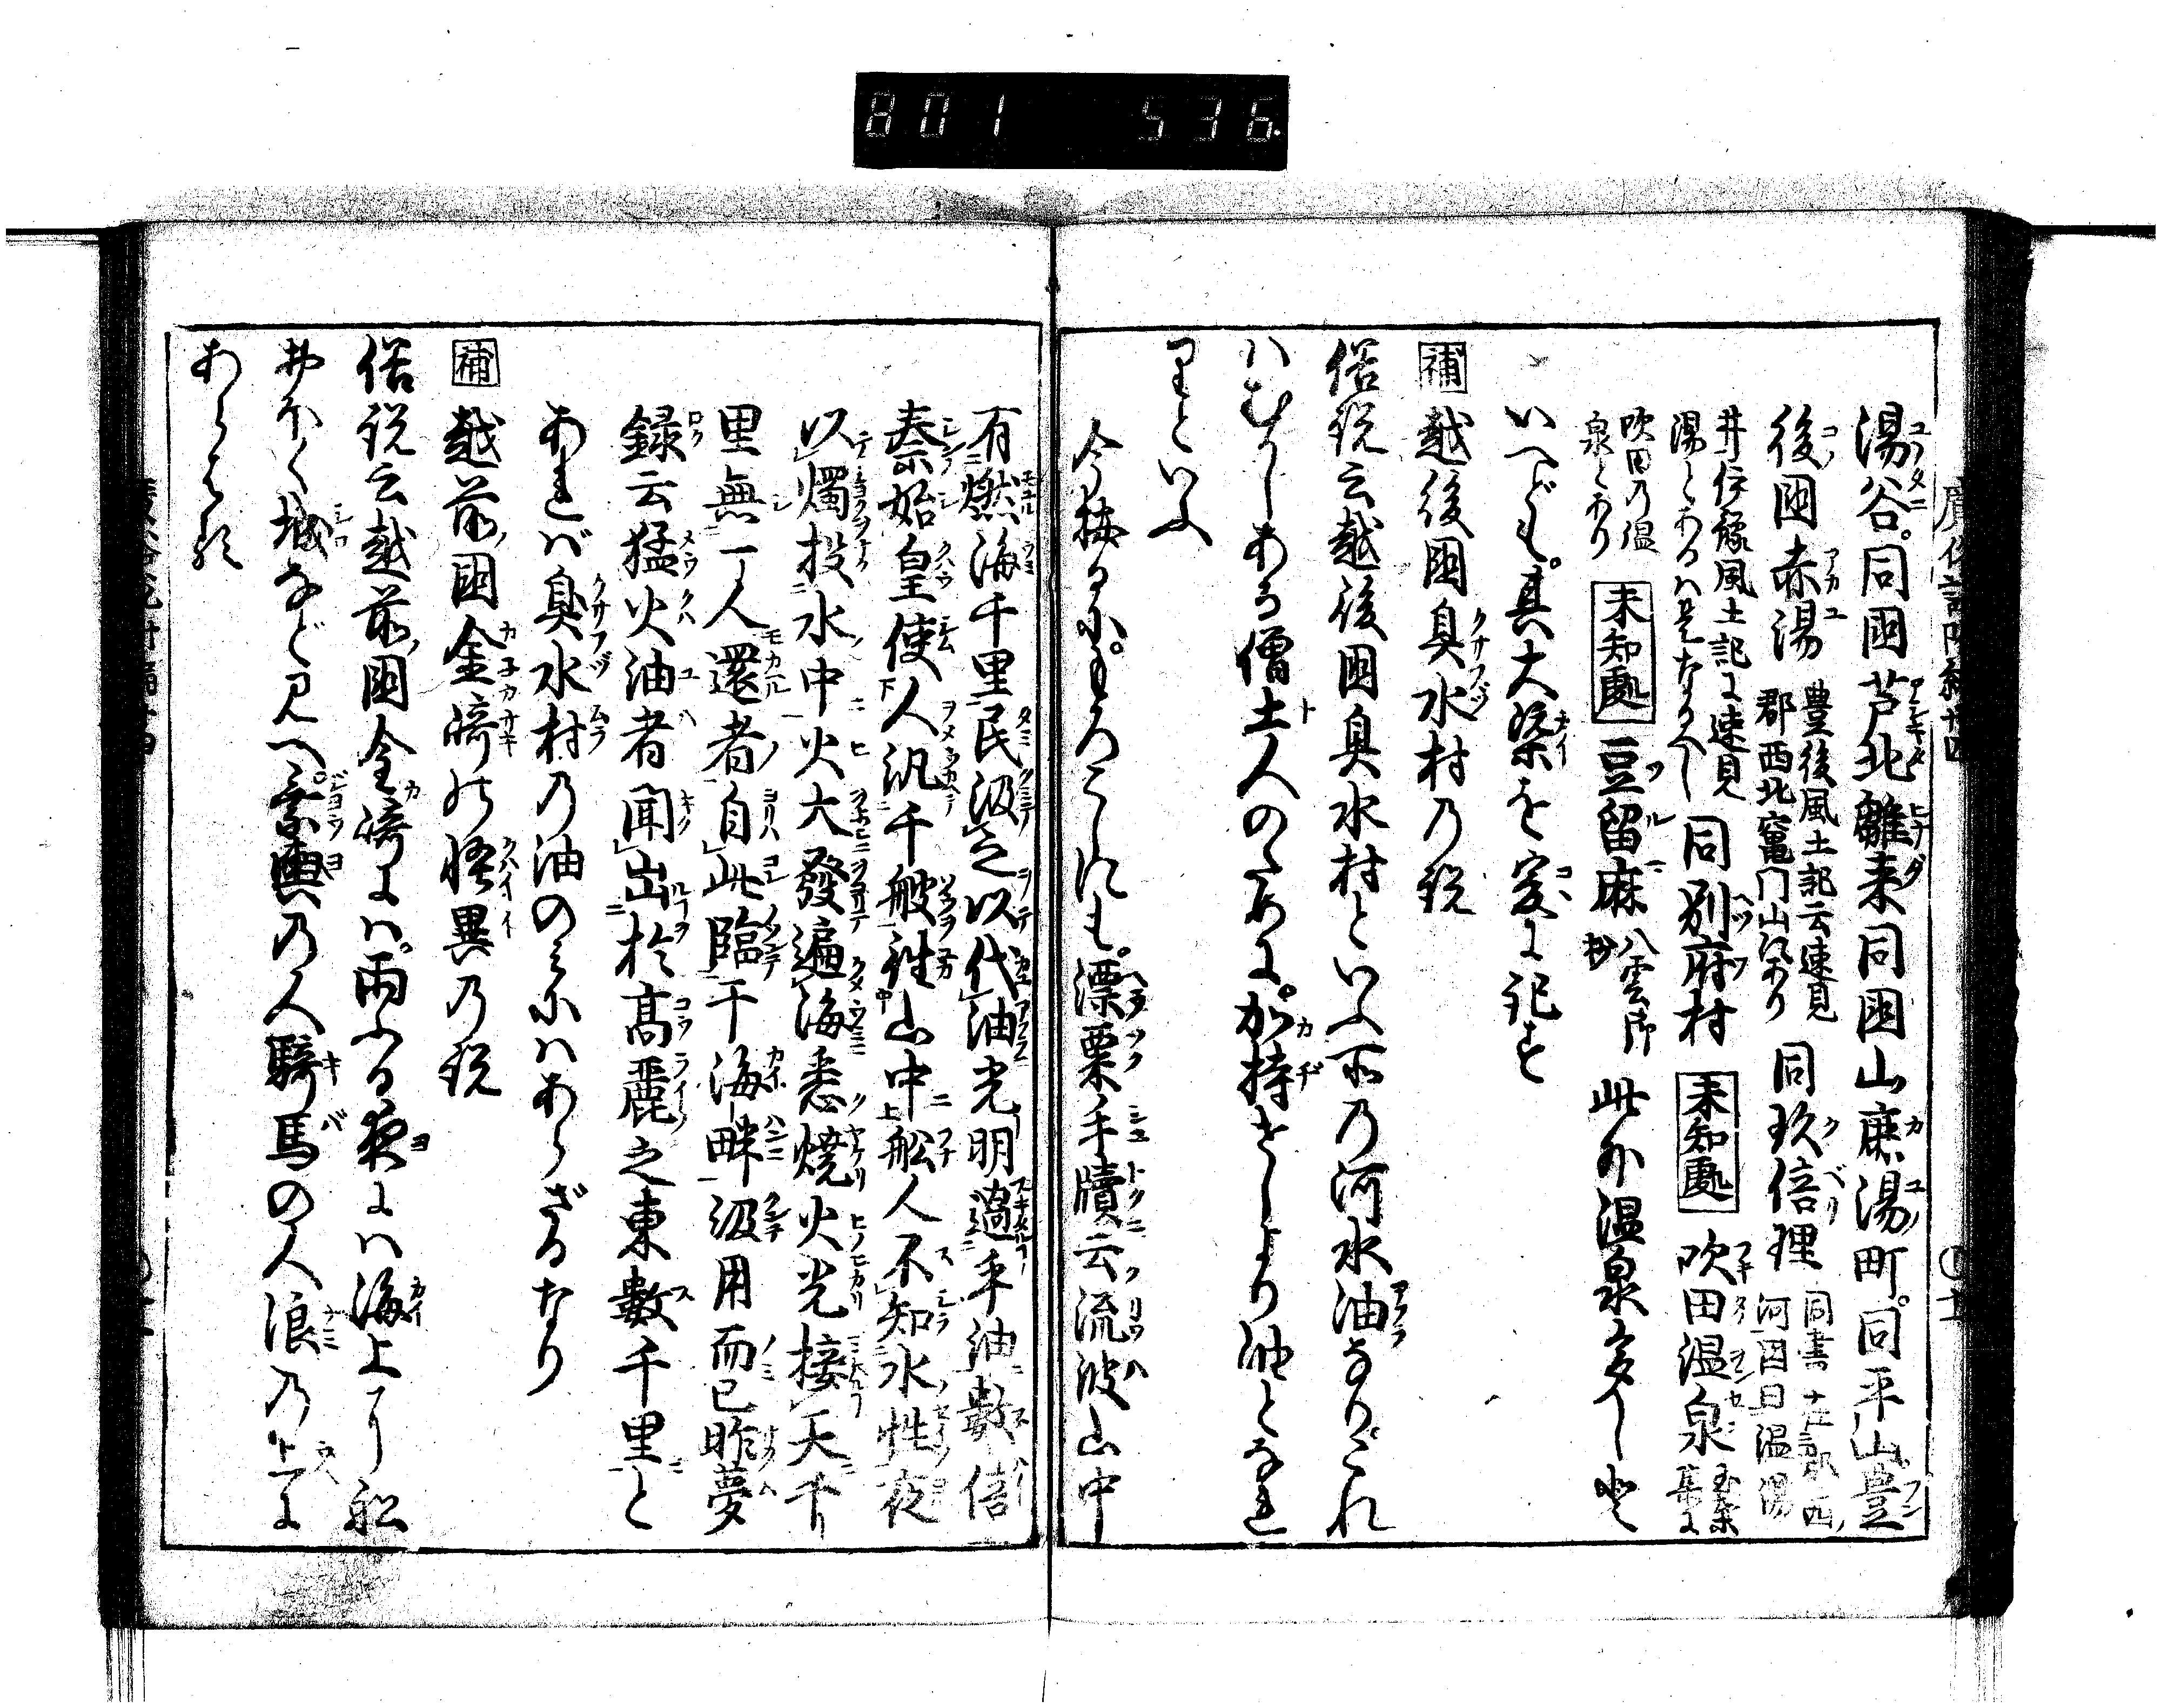 801 536.
湯谷。同国芦北雛来同国山鹿湯町。同平山。豊
後国赤湯 豊後風土記云速見
郡西北竈門山有り 同玖倍理 同書
河因曰温湯
井伊豫風土記に速見
湯とあるハ是なるへし 同別府村 未知處 吹田温泉
吹田乃温
泉とあり 未知處 豆留麻 八雲御
抄 此外温泉多しと
いへども。其大槩を爰に記す
補 越後国臭水村乃説
俗説云越後国臭水村といふ所乃河水油なり。これ
ハむかしある僧土人のために。加持せしより油となれ
りといふ
今按るに。もろこしにも。漂粟手牘云流波山中
有燃海千里民汲之以代油光明過平油數倍
秦始皇使人汎千艘詣山中舩人不知水性夜
以燭投水中火大發遍海悉燒火光接天千
里無一人還者自此臨干海畔汲用而已昨夢
録云猛火油者聞出於高麗之東數千里と
あれバ臭水村乃油のミにハあらざるなり
補 越前国金﨑の怪異乃説
俗説云越前国金﨑にハ。雨ふる夜にハ海上に舩
おほく城など見へ。乗輿乃人騎馬の人浪乃上に
あらはる